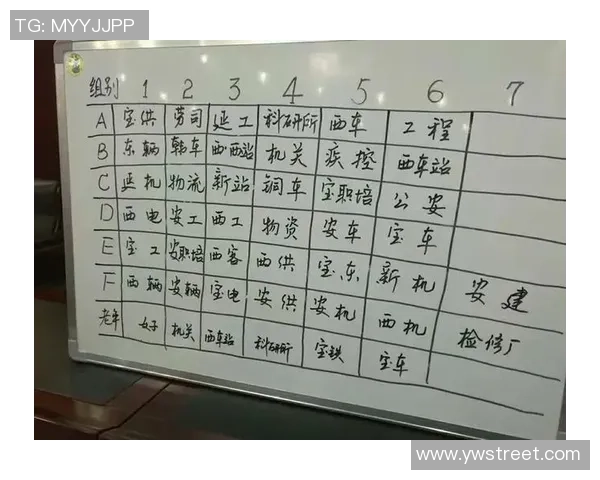 TG: MYYJJPP
组别 1 2 3 4 5 6 7
A 宝供 劳司 延工 科研所 西车 工程
B 东辆 韩车 西西站 机关 疾控 西车站
C 延机 物流 新站 铜车 宝职培 公安
D 西电 安工 西工 物资 安车 宝车
E 宝工 安职培 西客 西供 宝东 新机 安建
F 西辆 安辆 宝电 安供 安机 西机 检修厂
老年 女子 机关 西车站 科研所 宝铁 宝车
www.ywstreet.com